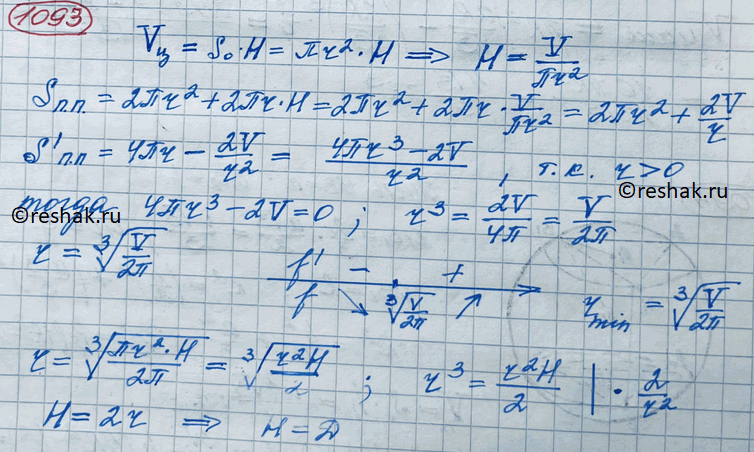 1093
Vц = Sо·H = πr²·H ⟹ H = V/πr²
Sп.п. = 2πr² + 2πr·H = 2πr² + 2πr·V/πr² = 2πr² + 2V/r
S'п.п = 4πr − 2V/r² = (4πr³ − 2V)/r² , т.к. r > 0
©reshak.ru
тогда 4πr³ − 2V = 0 ; r³ = 2V/4π = V/2π
©reshak.ru
r = ∛(V/2π) f' − +
f ↘ ∛(V/2π) ↗ rmin = ∛(V/2π)
r = ∛(πr²·H/2π) = ∛(r²H/2) ; r³ = r²H/2 | · 2/r²
H = 2r ⟹ H = D